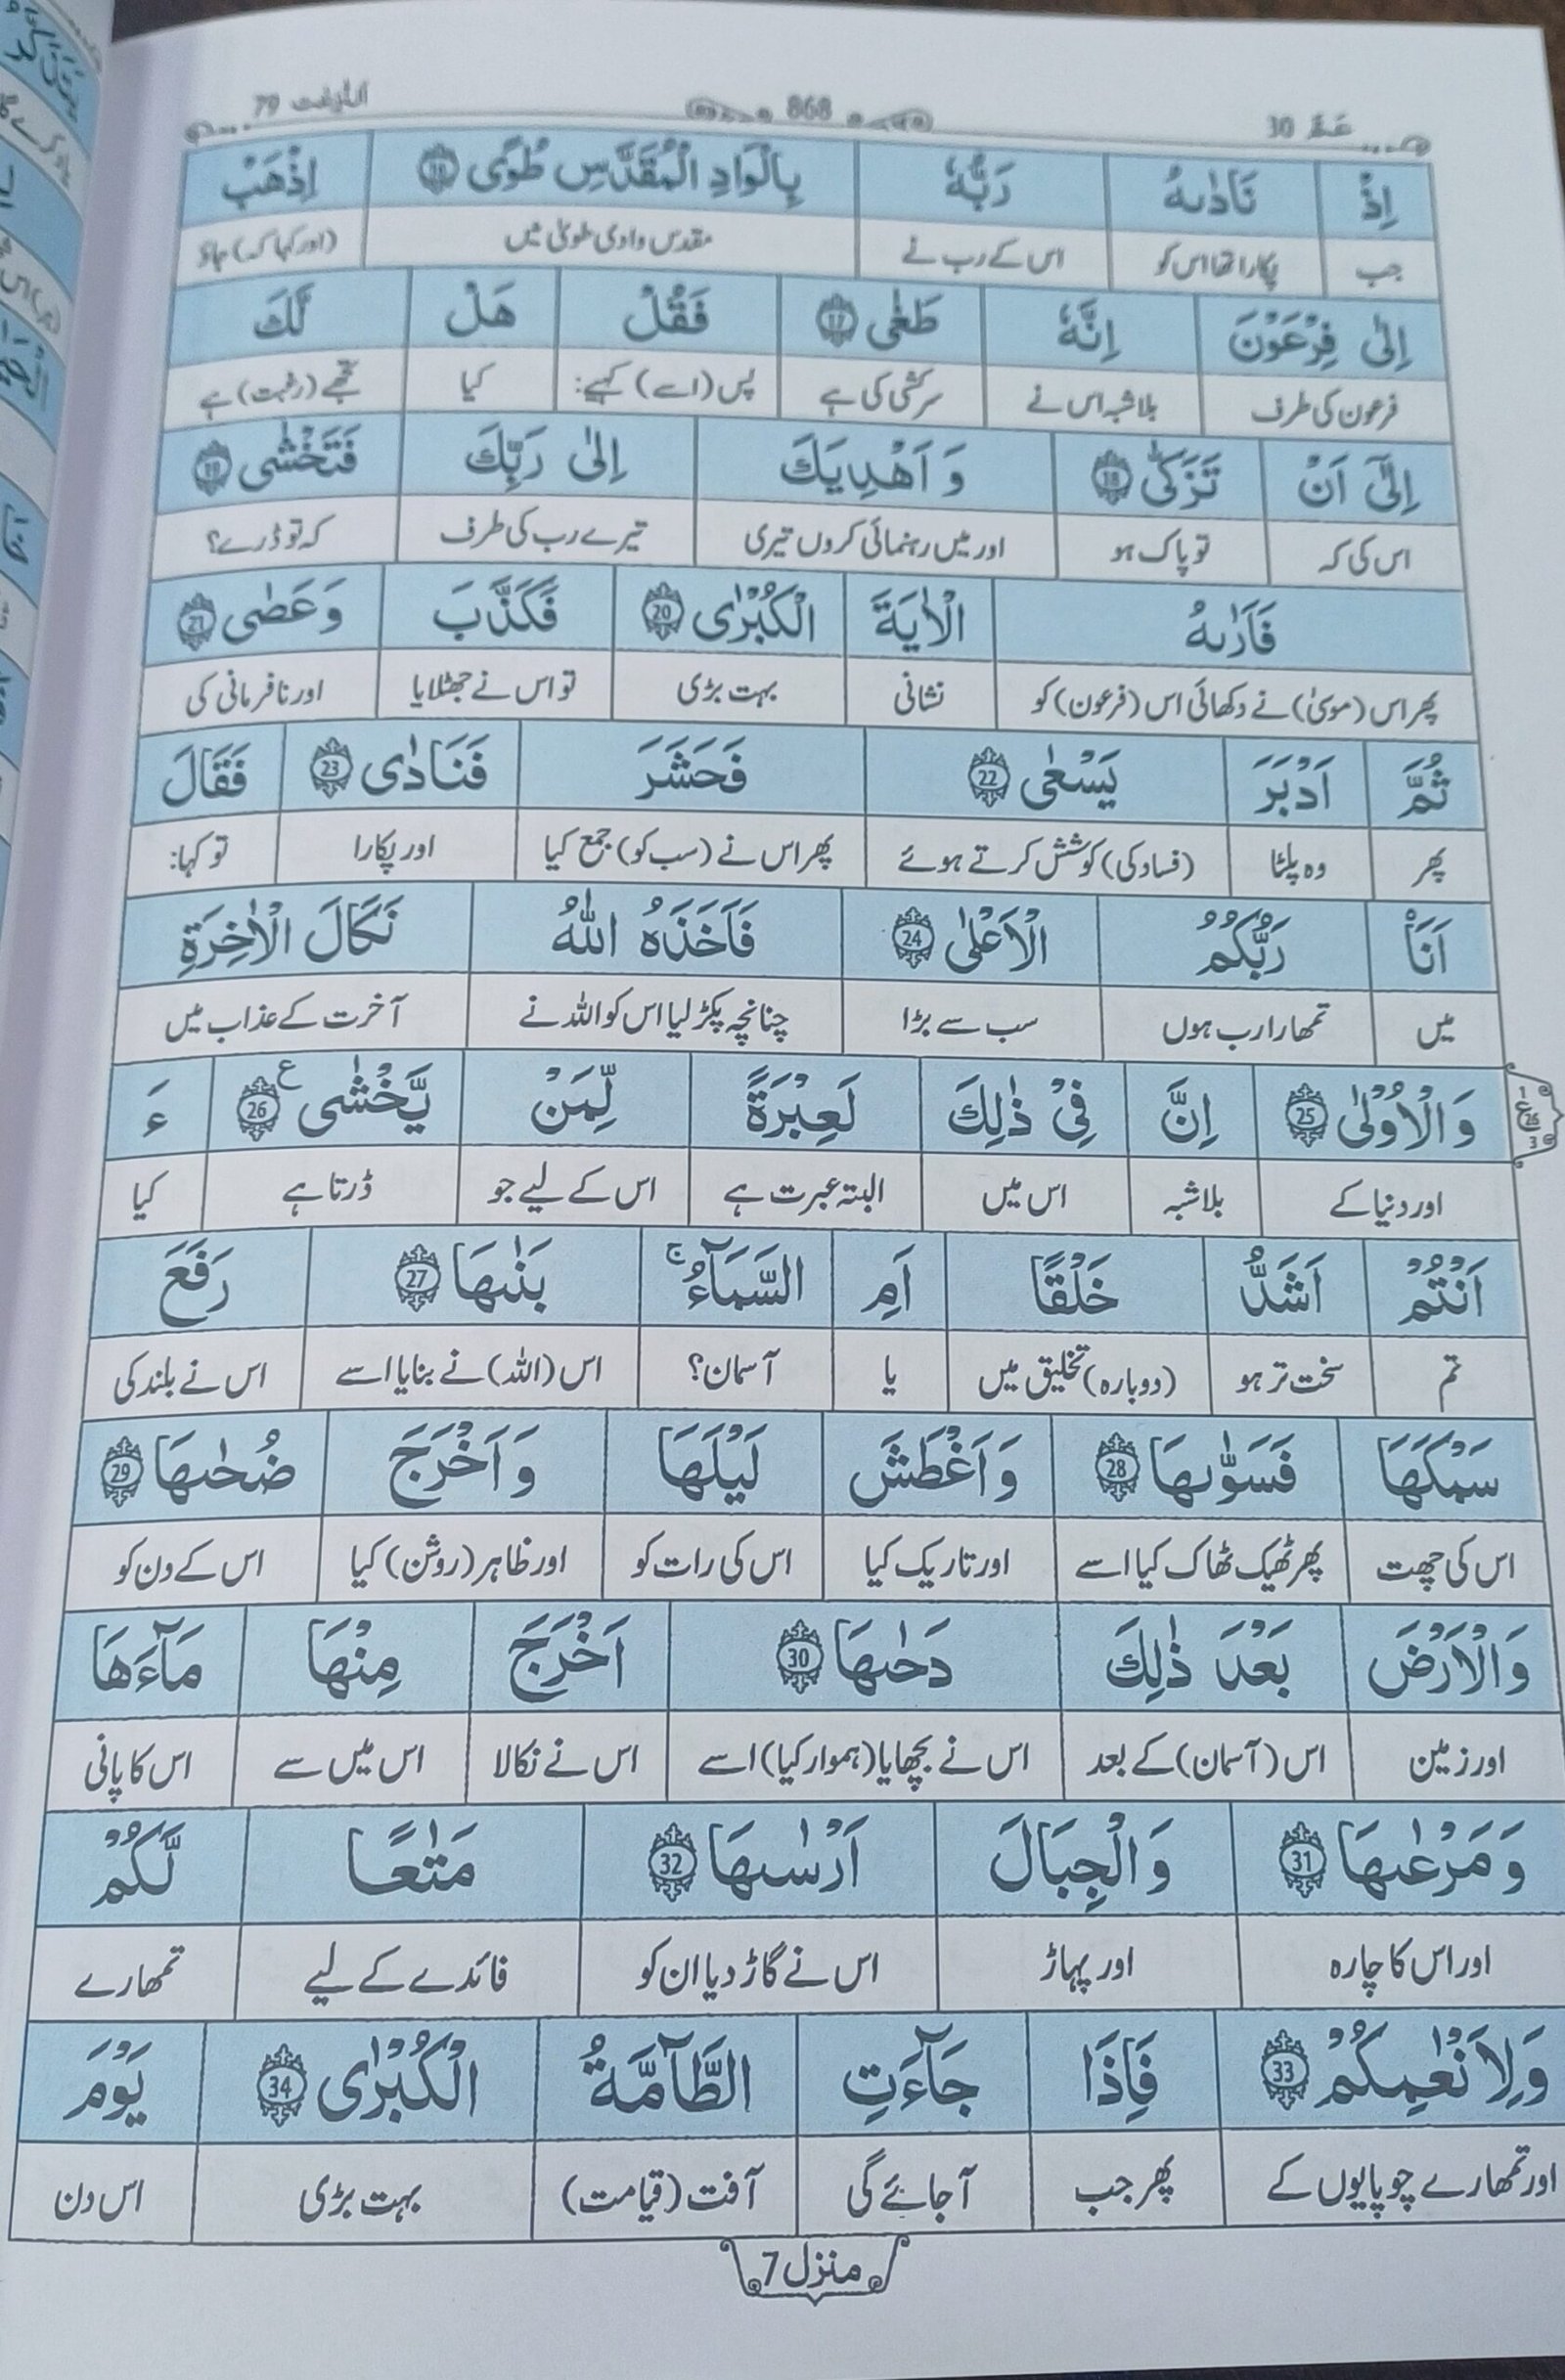 عَمَّ 30 868 اَلنّٰزِعٰت 79
اِذْ نَادٰىهُ رَبُّهٗ بِالْوَادِ الْمُقَدَّسِ طُوًى 16 اِذْهَبْ
جب پکارا تھا اس کو اس کے رب نے مقدس وادی طویٰ میں (اور کہا کہ) جاؤ
اِلٰى فِرْعَوْنَ اِنَّهٗ طَغٰى 17 فَقُلْ هَلْ لَّكَ
فرعون کی طرف بلاشبہ اس نے سرکشی کی ہے پس (اسے) کہیے: کیا تجھے (رغبت) ہے
اِلٰٓى اَنْ تَزَكّٰى 18 وَ اَهْدِيَكَ اِلٰى رَبِّكَ فَتَخْشٰى 19
اس کی کہ تو پاک ہو اور میں رہنمائی کروں تیری تیرے رب کی طرف کہ تو ڈرے؟
فَاَرٰىهُ الْاٰيَةَ الْكُبْرٰى 20 فَكَذَّبَ وَعَصٰى 21
پھر اس (موسیٰ) نے دکھائی اس (فرعون) کو نشانی بہت بڑی تو اس نے جھٹلایا اور نافرمانی کی
ثُمَّ اَدْبَرَ يَسْعٰى 22 فَحَشَرَ فَنَادٰى 23 فَقَالَ
پھر وہ پلٹا (فساد کی) کوشش کرتے ہوئے پھر اس نے (سب کو) جمع کیا اور پکارا تو کہا:
اَنَا۠ رَبُّكُمُ الْاَعْلٰى 24 فَاَخَذَهُ اللّٰهُ نَكَالَ الْاٰخِرَةِ
میں تمھارا رب ہوں سب سے بڑا چنانچہ پکڑ لیا اس کو اللہ نے آخرت کے عذاب میں
وَالْاُوْلٰى 25 اِنَّ فِيْ ذٰلِكَ لَعِبْرَةً لِّمَنْ يَّخْشٰى 26 ع ءَ
اور دنیا کے بلاشبہ اس میں البتہ عبرت ہے اس کے لیے جو ڈرتا ہے کیا
اَنْتُمْ اَشَدُّ خَلْقًا اَمِ السَّمَآءُ ۚ بَنٰىهَا 27 رَفَعَ
تم سخت تر ہو (دوبارہ) تخلیق میں یا آسمان؟ اس (اللہ) نے بنایا اسے اس نے بلند کی
سَمْكَهَا فَسَوّٰىهَا 28 وَاَغْطَشَ لَيْلَهَا وَاَخْرَجَ ضُحٰىهَا 29
اس کی چھت پھر ٹھیک ٹھاک کیا اسے اور تاریک کیا اس کی رات کو اور ظاہر (روشن) کیا اس کے دن کو
وَالْاَرْضَ بَعْدَ ذٰلِكَ دَحٰىهَا 30 اَخْرَجَ مِنْهَا مَآءَهَا
اور زمین اس (آسمان) کے بعد اس نے بچھایا (ہموار کیا) اسے اس نے نکالا اس میں سے اس کا پانی
وَمَرْعٰىهَا 31 وَالْجِبَالَ اَرْسٰىهَا 32 مَتٰعًا لَّكُمْ
اور اس کا چارہ اور پہاڑ اس نے گاڑ دیا ان کو فائدے کے لیے تمھارے
وَلِاَنْعٰمِكُمْ 33 فَاِذَا جَآءَتِ الطَّآمَّةُ الْكُبْرٰى 34 يَوْمَ
اور تمھارے چوپایوں کے پھر جب آ جائے گی آفت (قیامت) بہت بڑی اس دن
منزل 7